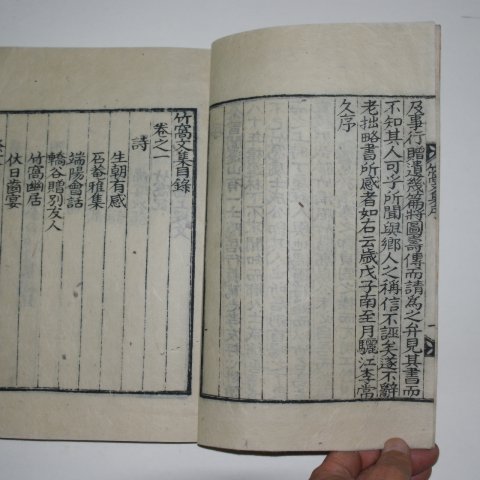 及事行贈遺幾篇將圖壽傳而請為之弁見其書而
不知其人可乎所聞與鄉人之稱信不誣矣遂不辭
老拙略書所感者如右云歲戊子南至月驪江李常
久序
竹窩文集目錄
卷之一
詩
生朝有感
石菴雅集
端陽會話
轎谷贈別友人
竹窩幽居
伏日園宴